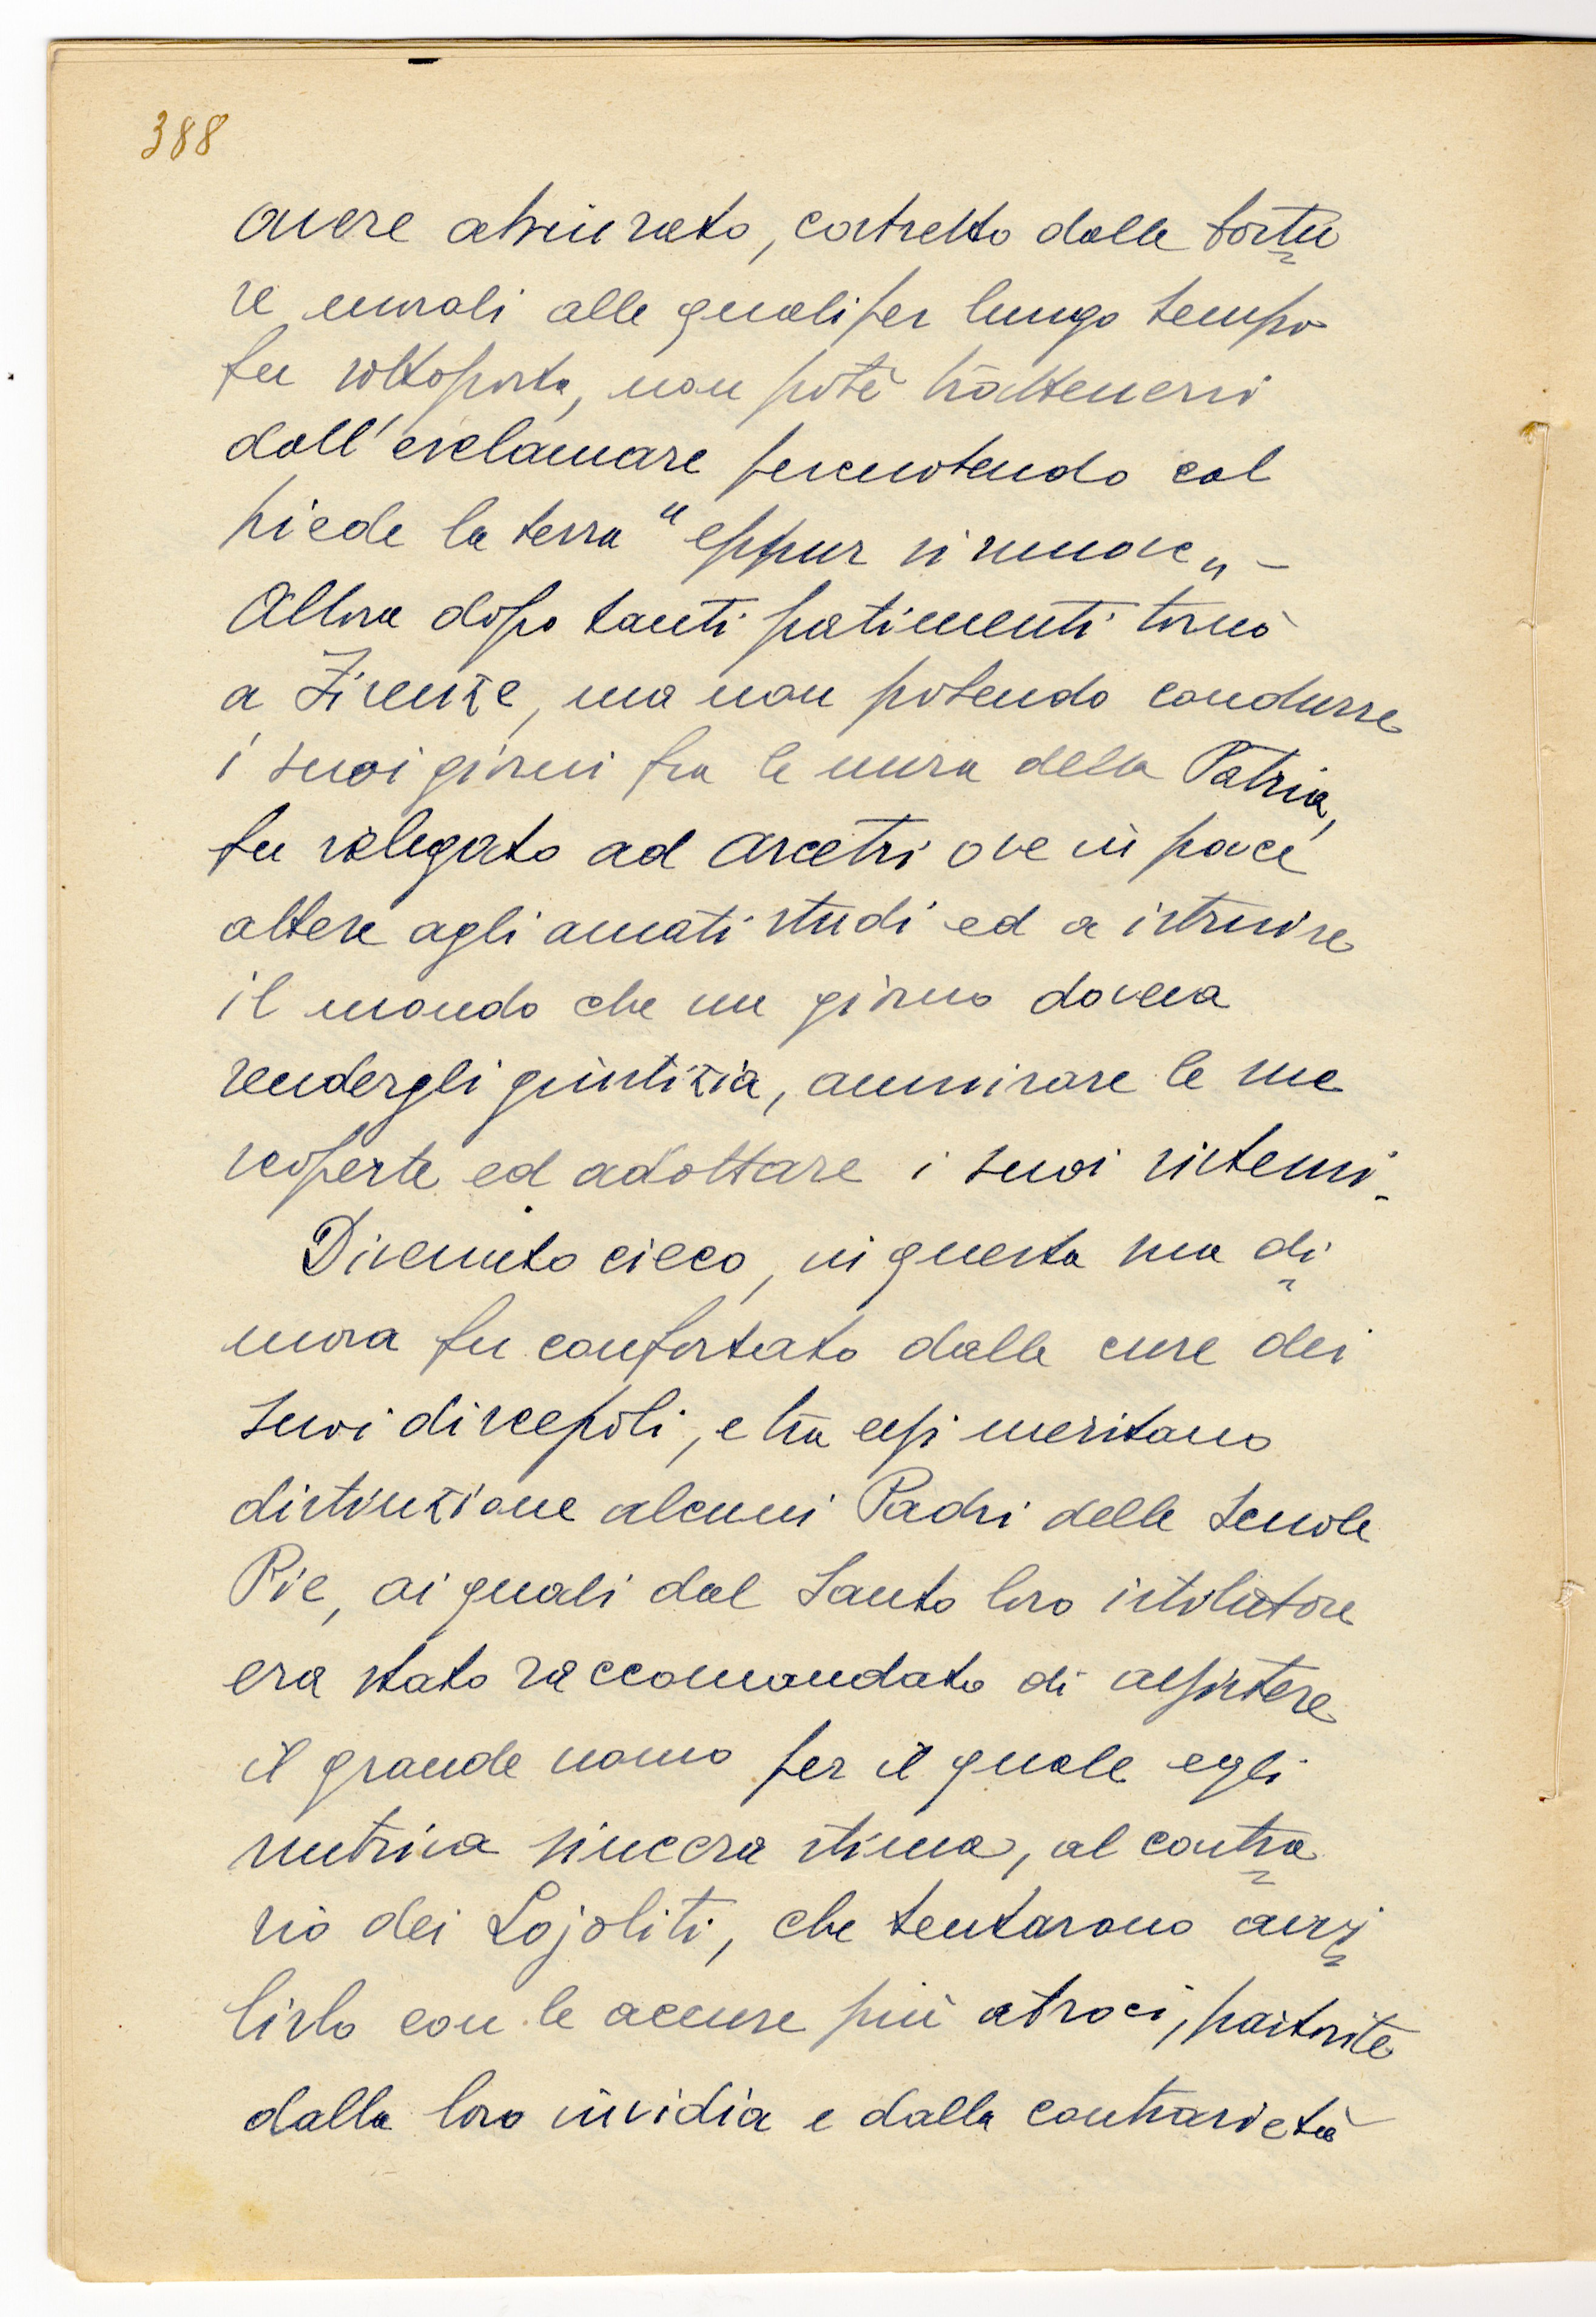 388
avere abiurato, costretto dalle tortu
re morali alle quali per lungo tempo
fu sottoposto, non potè trattenersi
dall'esclamare percuotendo col
piede la terra "eppur si muove„ –
Allora dopo tanti patimenti tornò
a Firenze, ma non potendo condurre
i suoi giorni fra le mura della Patria,
fu relegato ad Arcetri ove in pace
attese agli amati studi ed a istruire
il mondo che un giorno doveva
rendergli giustizia, ammirare le sue
scoperte ed adottare i suoi sistemi.
Divenuto cieco, in questa sua di
mora fu confortato dalle cure dei
suoi discepoli, e tra essi meritano
distinzione alcuni Padri delle Scuole
Pie, ai quali dal Santo loro istitutore
era stato raccomandato di assistere
il grande uomo per il quale egli
nutriva sincera stima, al contra
rio dei Lojoliti, che tentarono avvi
lirlo con le accuse più atroci, partorite
dalla loro invidia e dalla contrarietà